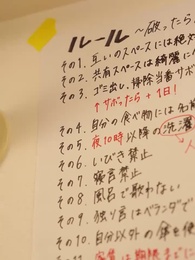 ルール ～破ったら、
その1. 互いのスペースには絶対
その2. 共有スペースは綺麗に
その3. ゴミ出し、掃除当番サボ
↑サボったら+1日!
その4. 自分の食べ物には名前
その5. 夜10時以降の洗濯
その6. いびき禁止
その7. 寝言禁止
その8. 風呂で歌わない
その9. 独り言はベランダで
その10. 自分以外の傘を使
家賃は期限までに